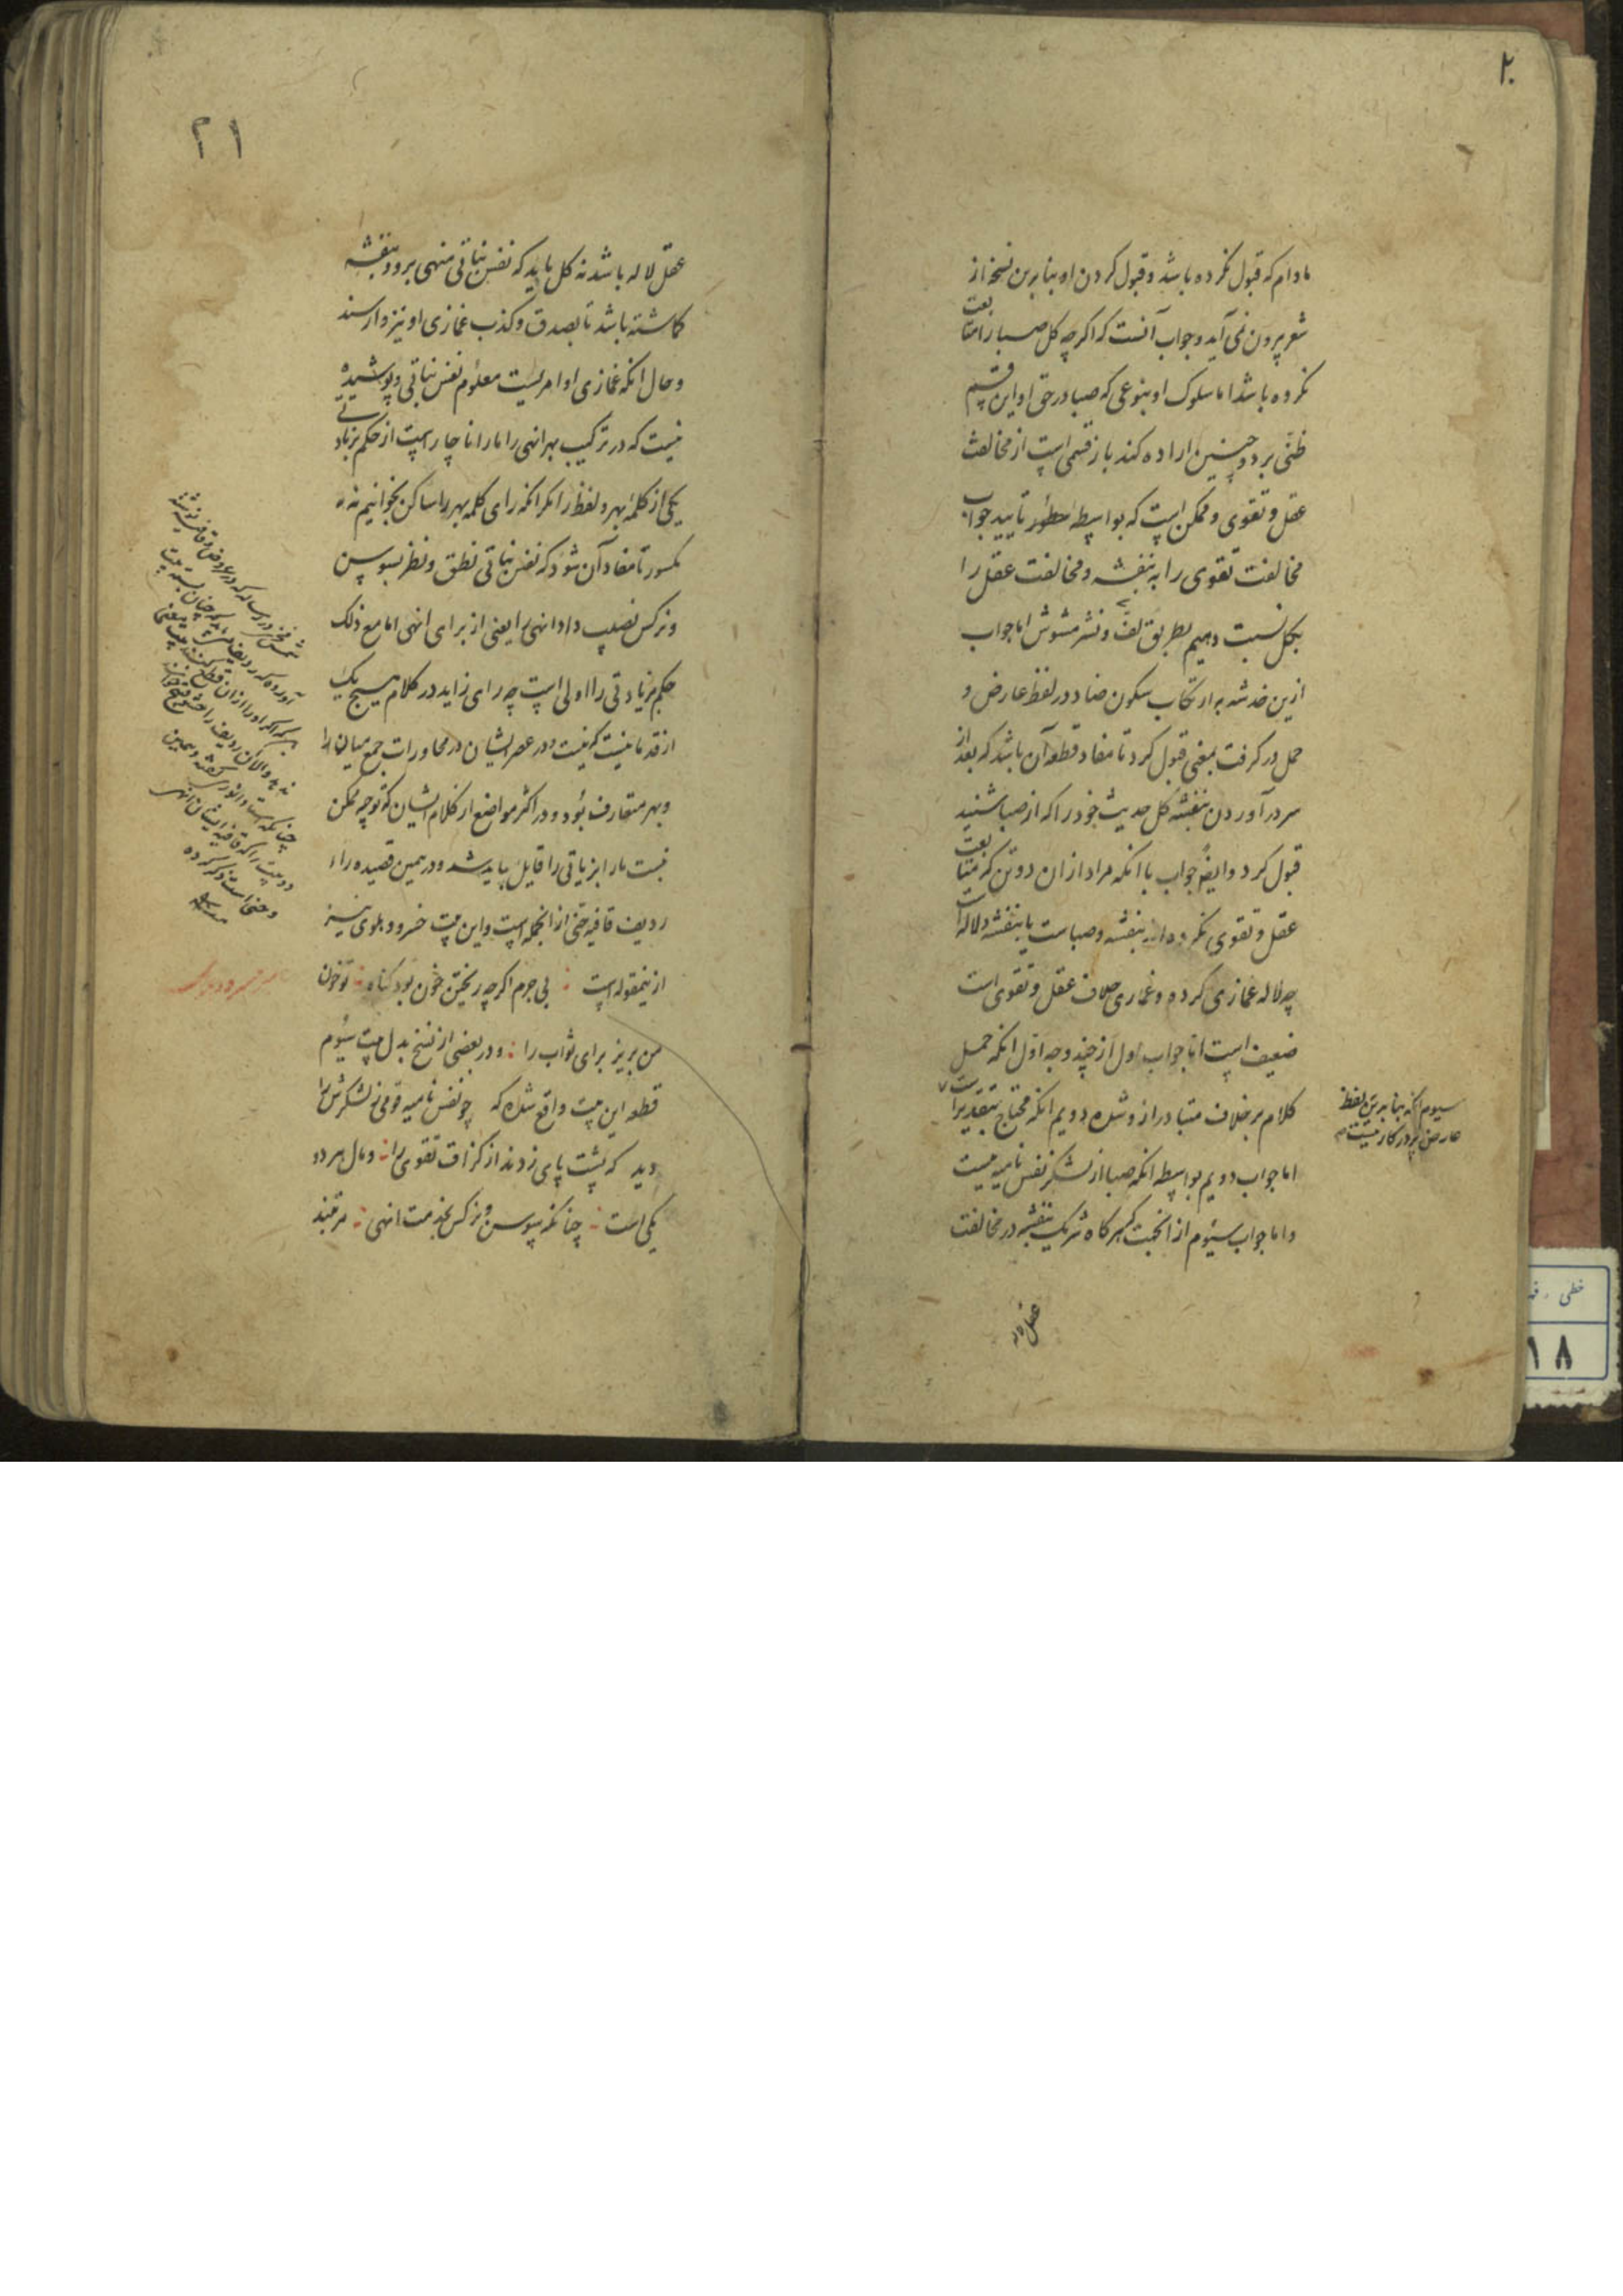 ۲۰
مادام که قبول نکرده باشد و قبول کردن او بنا برین نسخه از
شعر بیرون نمی آید و جواب آنست که اگر چه کل صبا را متابعت
نکرده باشد اما سلوک او بنوعی که صبا در حق او این قسم
ظنی برد و چنین اراده کند باز قسمی است از مخالفت
عقل و تقوی و ممکن است که بواسطه تایید جواب
مخالفت تقوی را به بنفشه و مخالفت عقل را
بکل نسبت دهیم بطریق لف و نشر مشوش اما جواب
ازین خدشه به ارتکاب سکون ضاد در لفظ عارض و
حمل در کرفت بمعنی قبول کرد تا مفاد قطعه آن باشد که بعد از
سر در آوردن بنفشه کل حدیث خود را که از صبا شنید
قبول کرد و ایضا جواب با انکه مراد از ان دو تن که متابعت
عقل و تقوی نکرده اند بنفشه و صباست یا بنفشه و لاله است
چه لاله غمازی کرده و غمازی خلاف عقل و تقوی است
ضعیف است اما جواب اول از چند وجه اول انکه حمل
کلام بر خلاف متبادر ازو شده دویم انکه محتاج بتقدیر است
سیوم انکه بنا برین لفظ
عارض پر در کار نیست
اما جواب دویم بواسطه انکه صبا از لشکر نفس نامیه نیست
و اما جواب سیوم از انجهت که هر کاه شریک بنفشه در مخالفت
عقل
۲۱
عقل لاله باشد نه کل باید که نفس نباتی منهی بر و بنفشه
کماشته باشد تا بصدق و کذب غمازی او نیز وارسند
و حال انکه غمازی او امریست معلوم نفس نباتی و پوشیده
نیست که در ترکیب بهر انهی را ما را ناچار است از حکم بزیادتی
یکی از کلمه بهر و لفظ را مکر انکه رای کلمه بهر را ساکن بخوانیم نه
مکسور تا مفاد آن شود که نفس نباتی نطق و نظر بسوسن
و نرکس نصیب داد انهی را یعنی از برای انهی اما مع ذلک
حکم بزیادتی را اولی است چه رای زاید در کلام هیچ یک
از قدما نیست که نیست و در عصر ایشان در محاورات جمع میان را
و بهر متعارف بوده و در اکثر مواضع از کلام ایشان که توجیه ممکن
نیست ما را بزیادتی را قایل باید شد و در همین قصیده را
ردیف قافیه حتی از انجمله است و این بیت خسرو دهلوی نیز
ازینمقوله است بی جرم اکر چه ریختن خون بود کناه تو خون
من بریز برای ثواب را و در بعضی از نسخ بدل بیت سیوم
قطعه این بیت واقع شده که چو نفس نامیه قومی ز لشکرش را
دید که پشت پای زدند از کزاف تقوی را و مال هر دو
یکی است چنانکه بسوسن و نرکس بخدمت انهی مرتبند